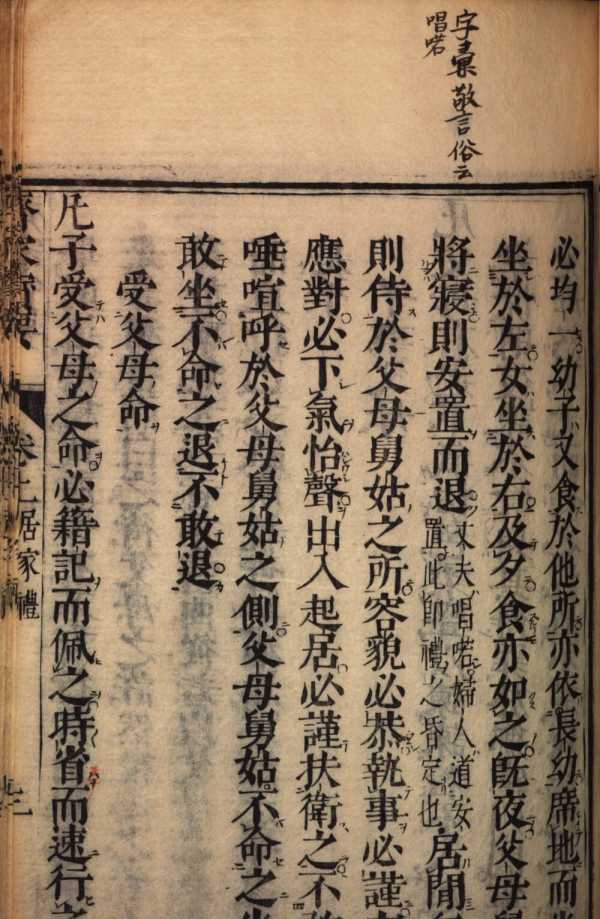 字彙敬言俗云
唱喏
必均一幼子又食於他所亦依長幼席地而
坐於左女坐於右及夕食亦如之既夜父母
將寢則安置而退
丈夫唱喏婦人道安
置此即禮之昏定也
居閒
則侍於父母舅姑之所容貌必恭執事必謹
應對必下氣怡聲出入起居必謹扶衛之不
唾喧呼於父母舅姑之側父母舅姑不命之坐
敢坐不命之退不敢退
受父母命
凡子受父母之命必籍記而佩之時省而速行之
卷上居家禮